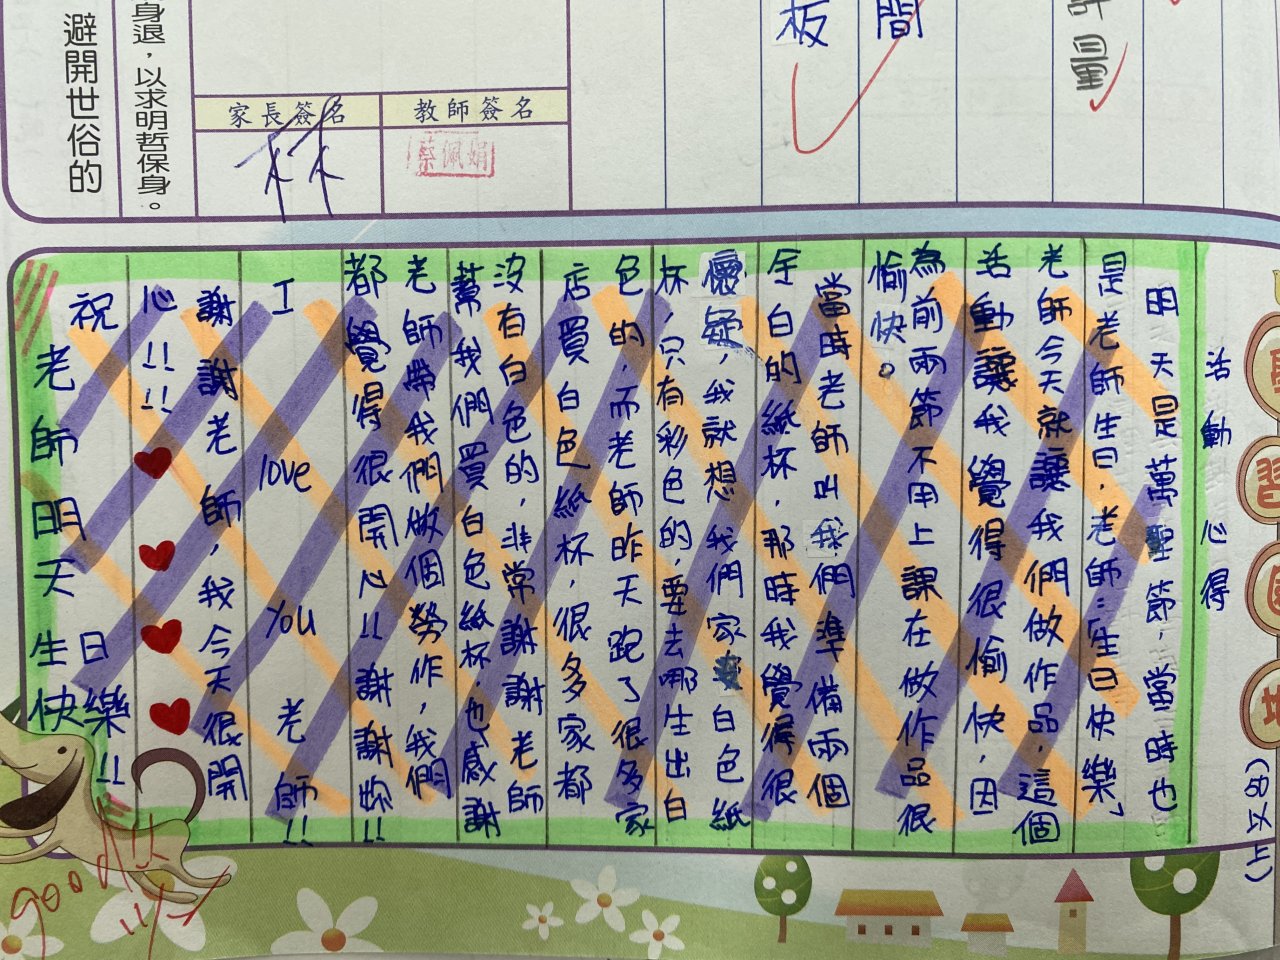 板
間
量
身退，以求明哲保身。
避開世俗的
家長簽名
教師簽名
林
蔡佩娟
習
活動心得
(50以上)
明天是萬聖節，當時也
是老師生日，老師：生日快樂」
老師今天就讓我們做作品，這個
活動讓我覺得很愉快，因
為前兩節不用上課在做作品很
愉快。
當時老師叫我們準備兩個
全白的紙杯，那時我覺得很
懷疑，我就想我們家白色紙
杯，只有彩色的，要去哪生出白
色的，而老師昨天跑了很多家
店買白色紙杯，很多家都
沒有白色的，非常謝謝老師
幫我們買白色紙杯，也感謝
老師帶我們做個勞作，我們
都覺得很開心!!謝謝妳!!
I love you 老師!!
謝謝老師，我今天很開
心!!!!
祝
老師明天生日快樂!!
good
11/1